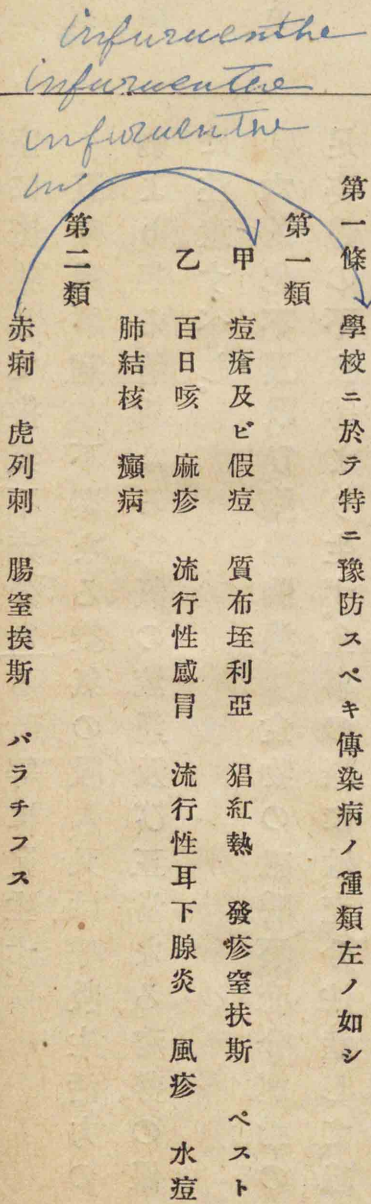 infuruenthe
infuruenthe
infuruenthe
in
第一條 學校ニ於テ特ニ豫防スベキ傳染病ノ種類左ノ如シ
第一類
甲 痘瘡及ビ假痘 質布垤利亞 猖紅熱 發疹窒扶斯 ペスト
乙 百日咳 麻疹 流行性感冒 流行性耳下腺炎 風疹 水痘
肺結核 癩病
第二類
赤痢 虎列刺 腸窒挨斯 パラチフス